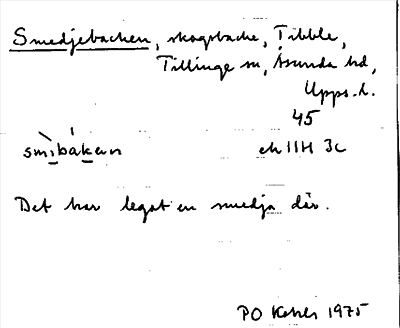 Smedjebacken, skogsbacke, Tibble,
Tillinge sn, Åsunda hd,
Upps. l.
45
smibakɛn
ek 11H 3c
Det har legat en smedja där.
PO 1975